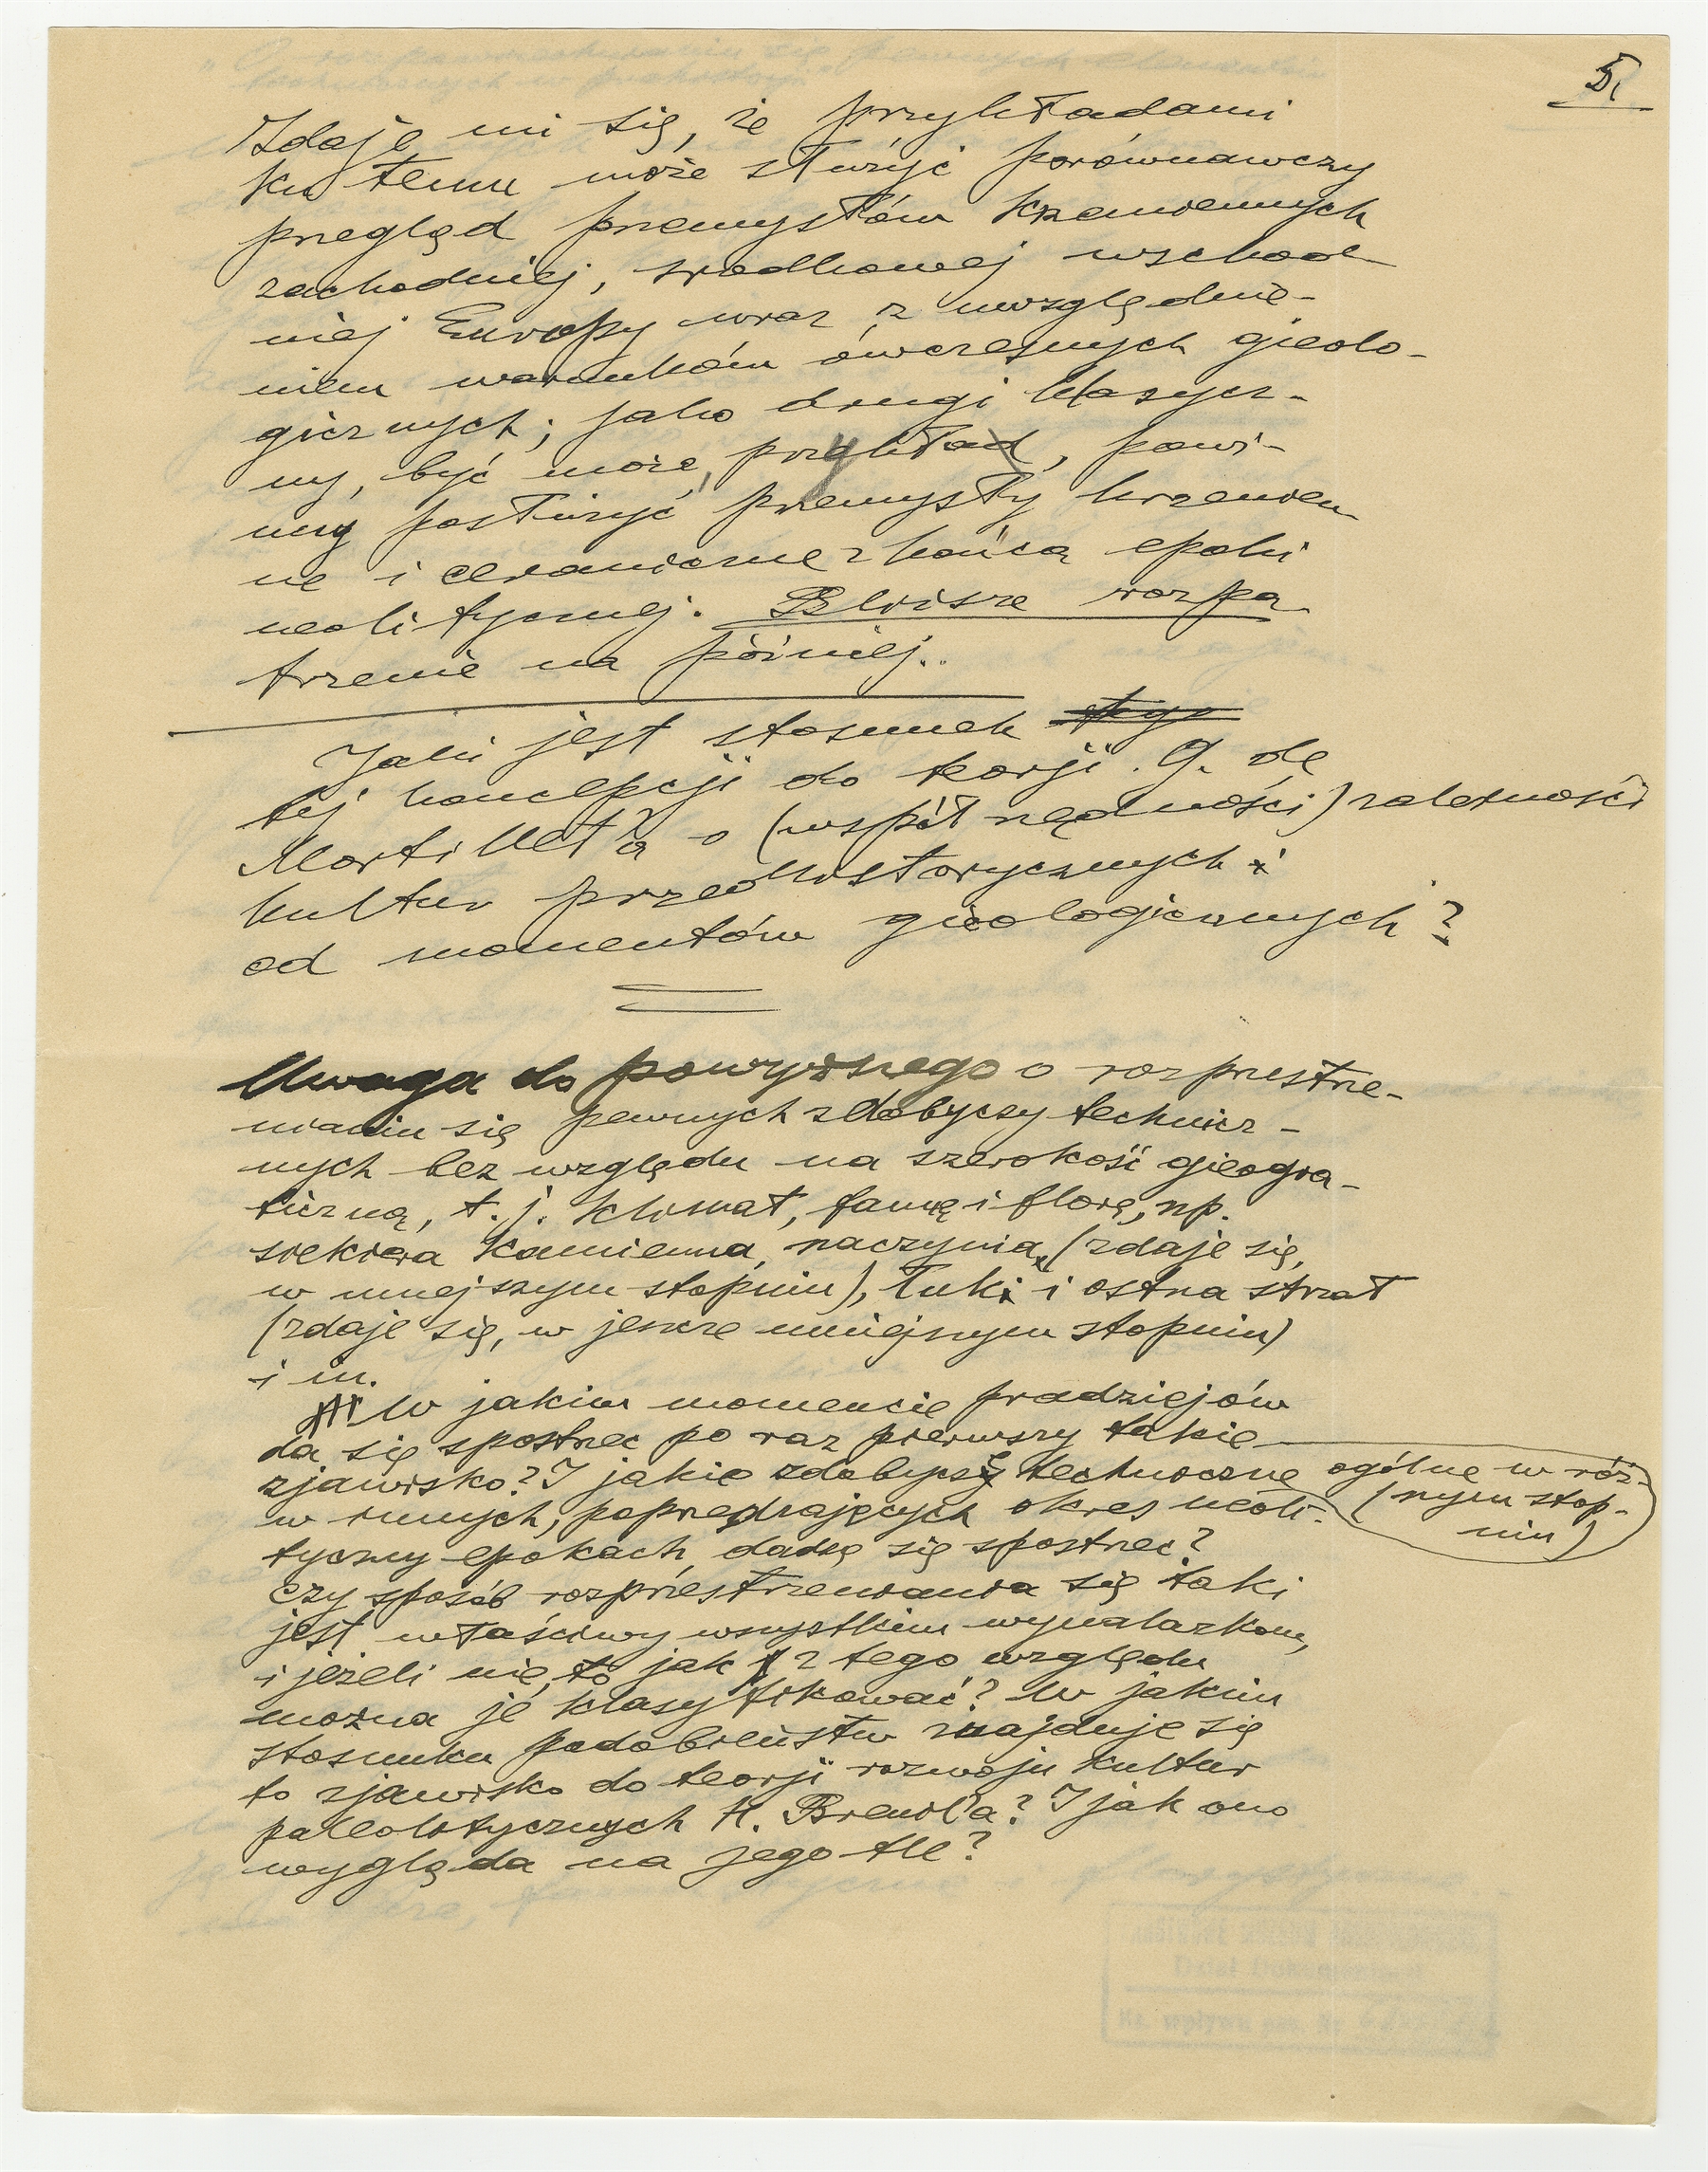 5.
Zdaje mi się, że przykładami
ku temu może służyć porównawczy
przegląd przemysłów krzemiennych
zachodniej, środkowej wschod-
niej Europy wraz z uwzględnie-
niem warunków ówczesnych gieolo-
gicznych; jako drugi klasycz-
ny, być może, przykład, powi-
ny posłużyć przemysły krzemien-
ne i ceramiczne z końca epoki
neolitycznej. Bliższe rozpa-
trzenie na później..
Jaki jest stosunek tego
tej koncepcji do teorji G. de
Mortillet'a o (współrzędności) zależności
kultur przedhistorycznych i
od momentów gieologicznych?
Uwaga do powyższego o rozprzestrze-
nianiu się pewnych zdobyczy technicz-
nych bez względu na szerokość gieogra-
ficzną, t. j. klimat, faunę i florę, np.
siekiera kamienna, naczynia, (zdaje się,
w mniejszym stopniu), łuki i ostrza strzał
(zdaje się, w jeszcze mniejszym stopniu)
i in.
W jakim momencie pradziejów
da się spostrzec po raz pierwszy takie
zjawisko? I jakie zdobyczy techniczne ogólne w róż-
nym stop-
niu)
w innych, poprzedzających okres neoli-
tyczny epokach, dadzą się spostrzec?
czy sposób rozprzestrzeniania się taki
jest właściwy wszystkim wynalazkom,
i jeżeli nie, to jak z tego względu
można je klasyfikować? W jakim
stosunku podobieństw znajduje się
to zjawisko do teorji rozwoju kultur
paleolitycznych H. Breuil'a? I jak ono
wygląda na jego tle?